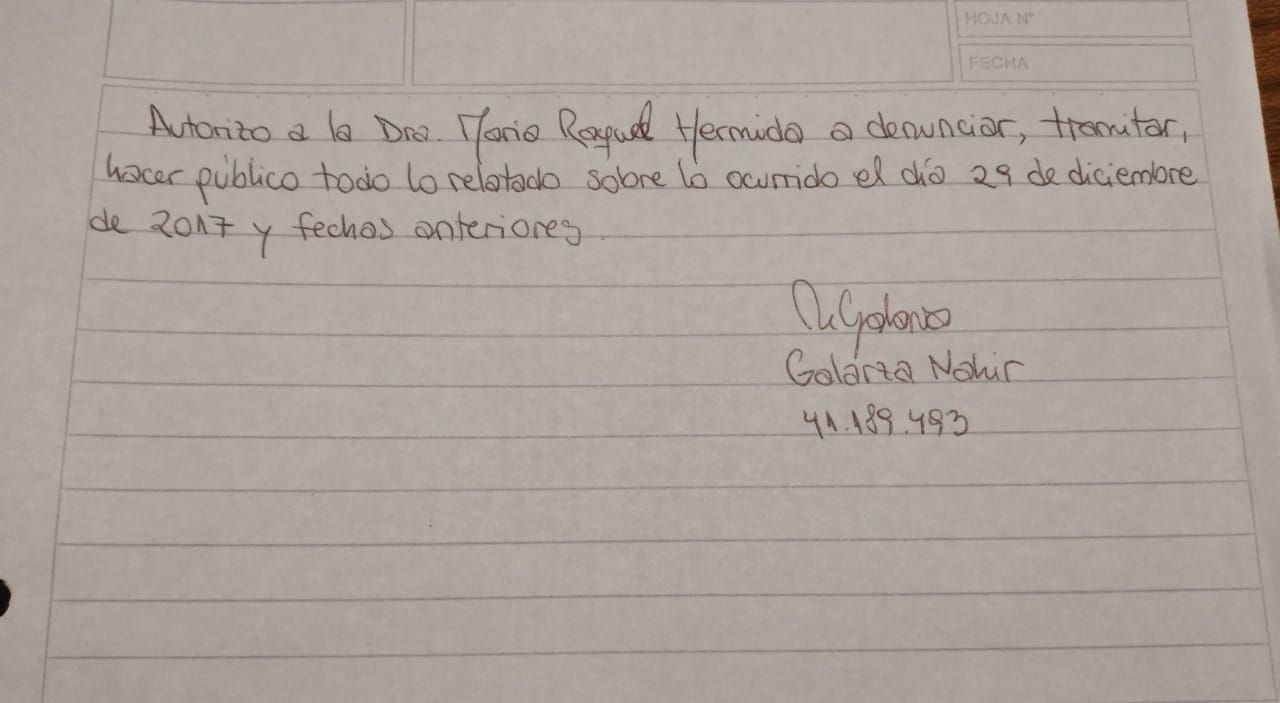 HOJA N°
FECHA
Autorizo a la Dra. Maria Raquel Hermida a denunciar, tramitar,
hacer público todo lo relatado sobre lo ocurrido el día 29 de diciembre
de 2017 y fechas anteriores.
NGalarza
Galarza Nahir
41.189.493